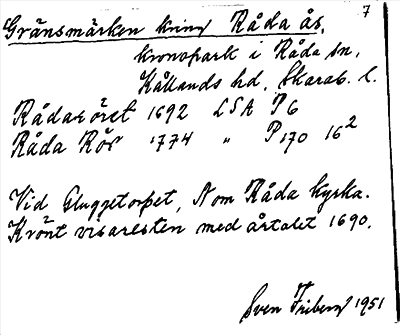 7
Gränsmärken kring Råda ås,
Kronopark i Råda sn,
Kållands hd, Skarab. l.
Rådaröret 1692 LSA P6
Råda Rör 1774 " P170 16²
Vid Gluggetorpet, N om Råda kyrka.
Krönt visaresten med årtalet 1690.
Sven Friberg 1951